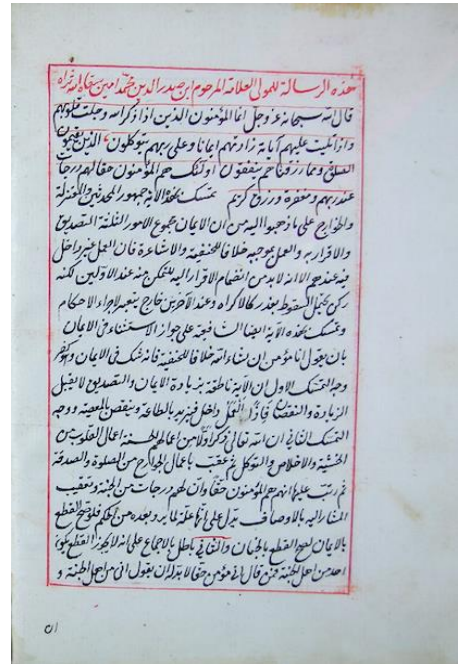 هذه الرسالة للمولى العلامة المرحوم ابن صدر الدين محمد امين سقاه الله ثراه
قال الله سبحانه عز وجل انما المؤمنون الذين اذا ذكر الله وجلت قلوبهم
واذا تليت عليهم آياته زادتهم ايمانا وعلى ربهم يتوكلون الذين يقيمون
الصلوة ومما رزقناهم ينفقون اولئك هم المؤمنون حقا لهم درجات
عند ربهم ومغفرة ورزق كريم تمسك بهذه الآية جمهور المحدثين والمعتزلة
والخوارج على ما ذهبوا اليه من ان الايمان مجموع الامور الثلثة التصديق
والاقرار به والعمل بموجبه خلافا للحنفية والاشاعرة فان العمل غير داخل
فيه عندهم الا انه لا بد من انضمام الاقرار اليه للتمكن منه عند الاولين لكنه
ركن يحتمل السقوط بعذر كالاكراه وعند الآخرين خارج يعتبر لاجراء الاحكام
وتمسك بهذه الآية ايضا الشافعية على جواز الاستثناء في الايمان
بان يقول انا مؤمن ان شاء الله خلافا للحنفية فانه شك في الايمان
وجه التمسك الاول ان الآية ناطقة بزيادة الايمان والتصديق لا يقبل
الزيادة والنقصان فاذن العمل داخل فيزيد بالطاعة وينقص بالمعصية ووجه
التمسك الثاني ان الله تعالى ذكر اولا من اعمالهم الحسنة اعمال القلوب من
الخشية والاخلاص والتوكل ثم عقب باعمال الجوارح من الصلوة والصدقة
ثم رتب عليها انهم هم المؤمنون حقا وان لهم درجات من الجنة وتعقيب
المشار اليه بالاوصاف يدل على انها علة لما يرد بعده من الحكم فلو صح القطع
بالايمان لصح القطع بالجنان والثاني باطل بالاجماع على انه لا يجوز القطع بكون
احد من اهل الجنة فمن قال اني مؤمن حقا لا بد له ان يقول اني من اهل الجنة و